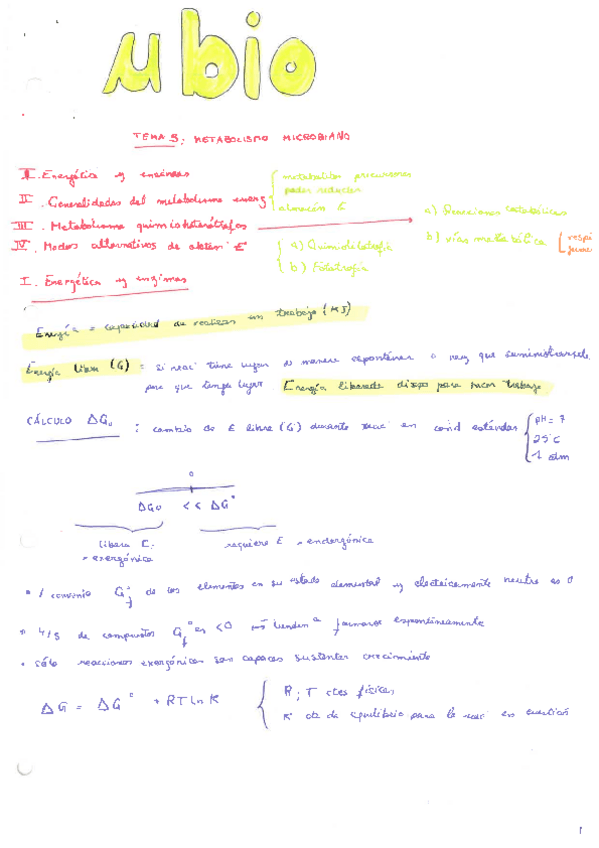 µbio
TEMA 3: METABOLISMO MICROBIANO
I. Energética y enzimas
metabolitos precursores
poder reductor
II. Generalidades del metabolismo energ
almacén E
III. Metabolismo quimioheterótrofos
a) Reacciones catabólicas
IV. Modos alternativos de obten E
a) Quimiolitotrofía
b) Fototrofía
b) vías metabólica
respi
I. Energética y enzimas
Energía = capacidad de realizar un trabajo (KJ)
Energía libre (G) = si reac tiene lugar de manera espontánea o hay que suministrársela
para que tenga lugar Energía liberada dispo para hacer trabajo
CÁLCULO ΔG₀ : cambio de E libre (G) durante reac en cond estándar
pH = 7
25°C
1 atm
0
ΔG₀ << ΔG°
libera E: exergónica
requiere E endergónica
convenio G°f de los elementos en su estado elemental y eléctricamente neutro es 0
4/5 de compuestos G°f es <0 tienden a formarse espontáneamente
sólo reacciones exergónicas son capaces sustentar crecimiento
ΔG = ΔG° + RT ln K
R; T ctes físicas
K cte de equilibrio para la reac en cuestión
1